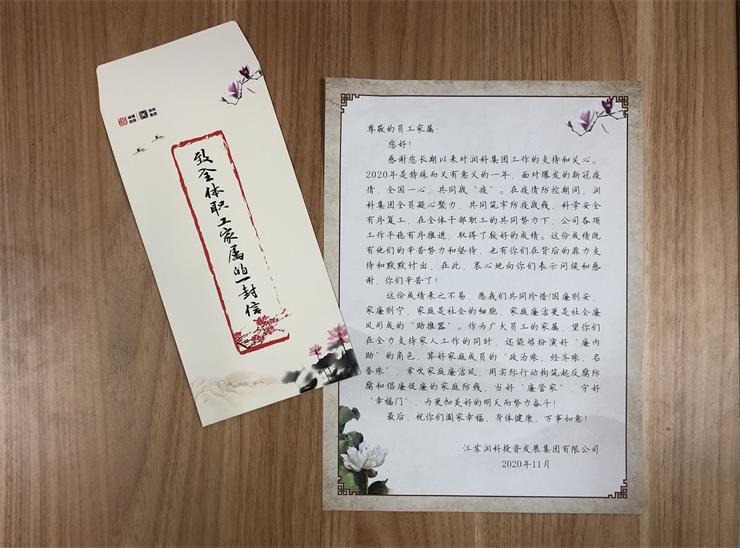 致全体职工家属的一封信
尊敬的员工家属：
您好！
感谢您长期以来对润科集团工作的支持和关心。
2020年是特殊而又有意义的一年，面对爆发的新冠疫
情，全国一心，共同战“疫”。在疫情防控期间，润
科集团全员凝心聚力，共同筑牢防疫战线，科学安全
有序复工，在全体干部职工的共同努力下，公司各项
工作平稳有序推进，取得了较好的成绩。这份成绩既
有他们的辛苦努力和坚持，也有你们在背后的鼎力支
持和默默付出，在此，衷心地向你们表示问候和感
谢，你们辛苦了！
这份成绩来之不易，愿我们共同珍惜！国廉则安，
家廉则宁，家庭是社会的细胞，家庭廉洁更是社会廉
风形成的“助推器”。作为广大员工的家属，望你们
在全力支持家人工作的同时，还能够扮演好“廉内
助”的角色，算好家庭成员的“政治账、经济账、名
誉账”，常吹家庭廉洁风，用实际行动构筑起反腐防
腐和倡廉促廉的家庭防线，当好“廉管家”，守好
“幸福门”，为更加美好的明天而努力奋斗！
最后，祝你们阖家幸福、身体健康、万事如意！
江苏润科投资发展集团有限公司
2020年11月